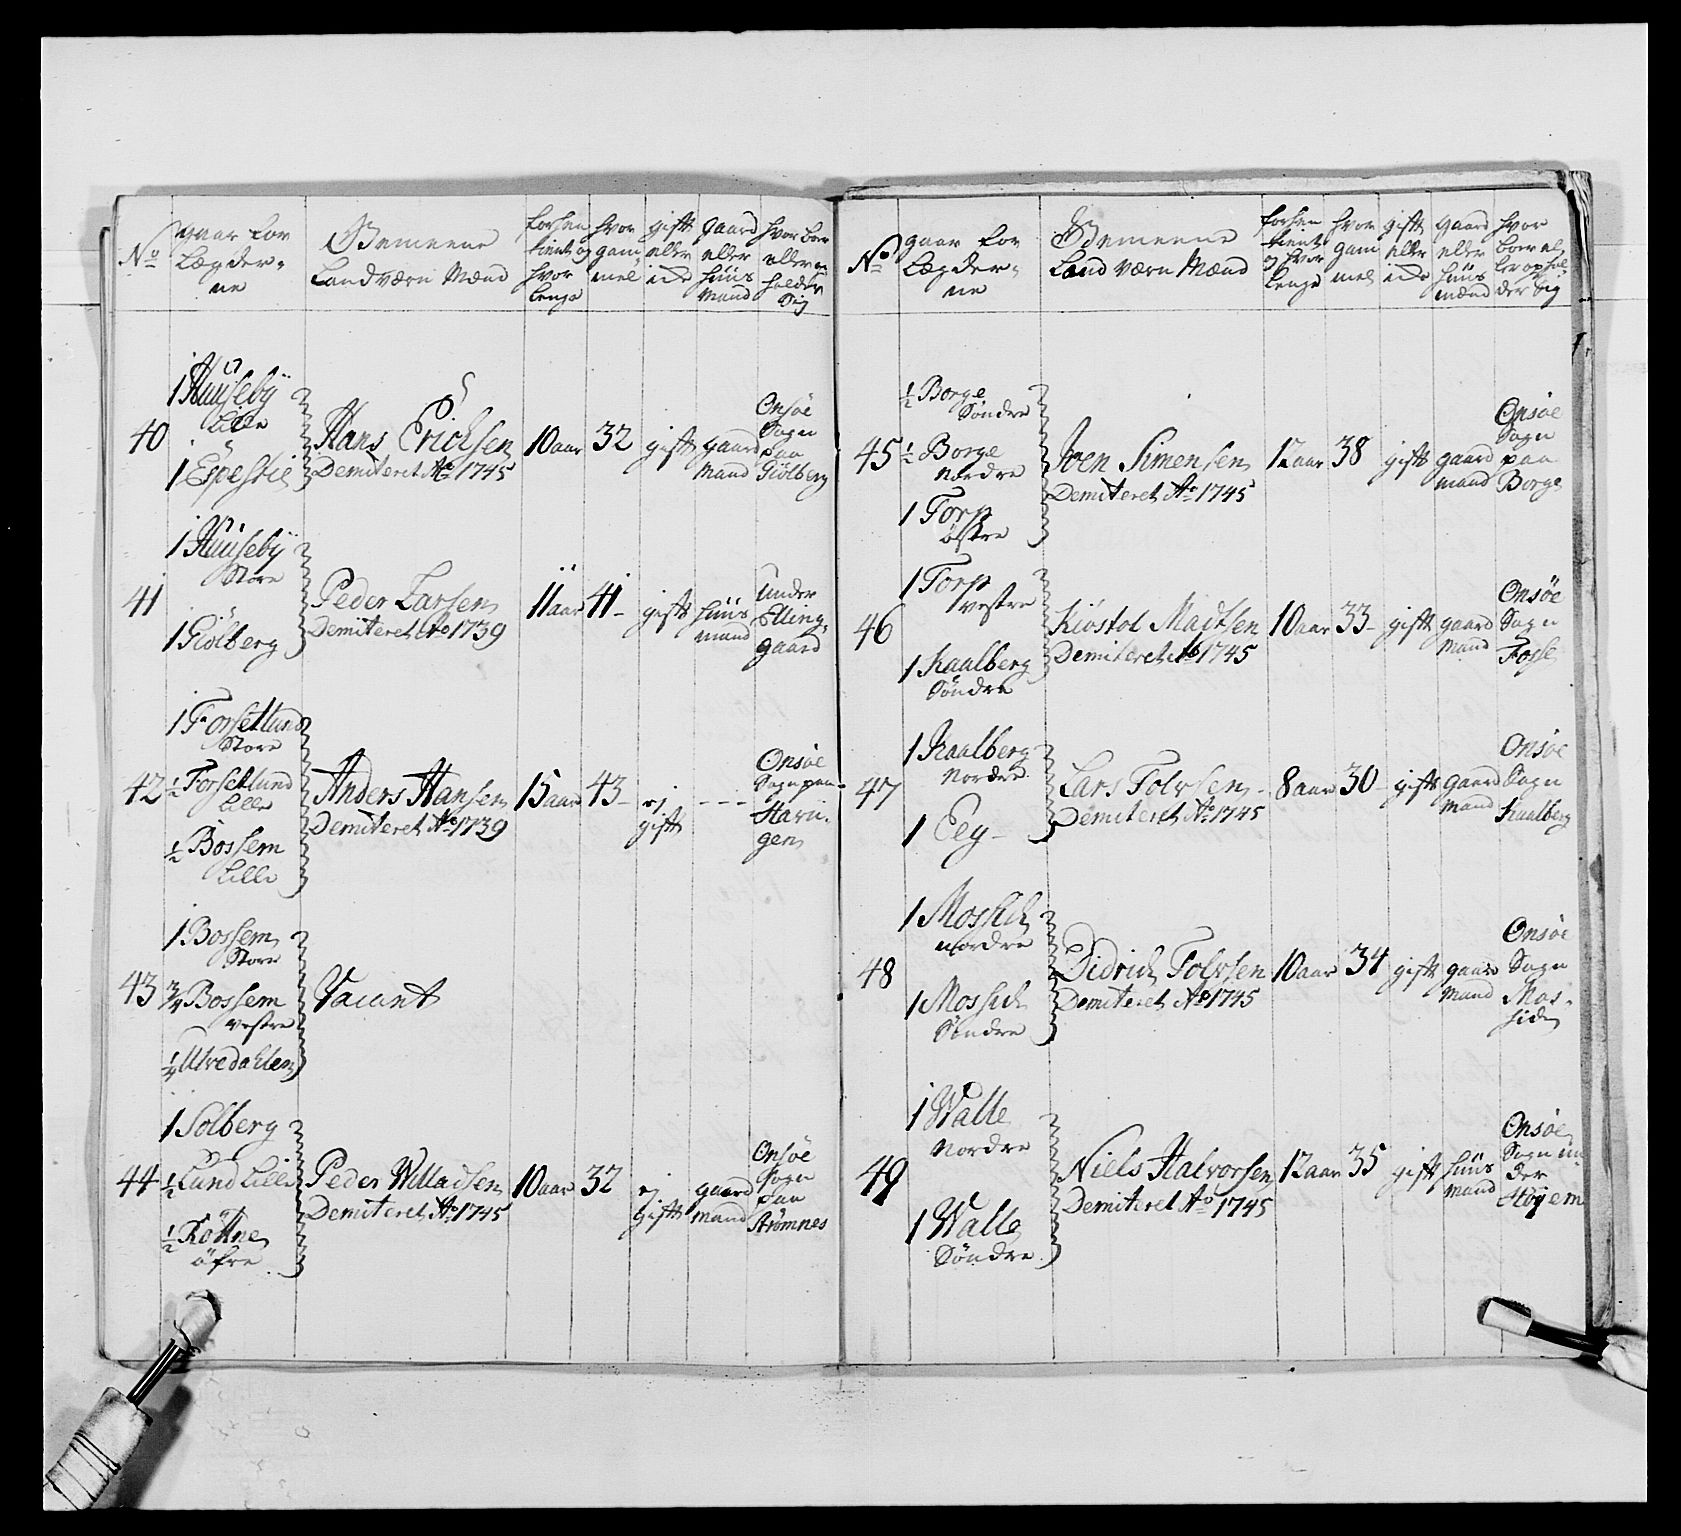 No
gaar for
Lægder-
ne
Gemeene
Landværn Mænd
forhen
tient og
hvor
lenge
hvor
gam
mel
gift
eller
ide
gaard
eller
Huus
Mand
hvor boer
eller op
holder
Sig
40
1 Huuseby
Lille
1 Espestie
Hans Erichsen
Demiteret Ao 1745
10 aar
32
gift
gaard
Mand
Onsøe
Sogn
paa
Giölberg
41
1 Huuseby
Store
1 Giölberg
Peder Larsen
Demiteret Ao 1739
11 aar
41-
gift
Huus
mand
Under
Elling-
gaard
42
1 Forsetlund
Store
1/2 Forsetlund
Lille
1/2 Bossem
Lille
Anders Hansen
Demiteret Ao 1739
15 aar
43-
ej
gift
- - -
Onsøe
Sogn paa
43
1 Bossem
Store
3/4 Bossem
vestre
1/4 Ulvedahlen
Vacant
44
1 Solberg
1/2 Lund Lille
1/2 Röttne
öfre
Peder Willadsen
Demiteret Ao 1745
10 aar
32
ej
gift
gaard
mand
Onsøe
Sogn
paa
Strømnes
No
gaar for
Lægder-
ne
Gemeene
Land værn Mænd
forhen
tient
og hvor
lenge
hvor
gam
mel
gift
eller
ide
gaard
eller
Huus
mænd
hvor
boer el-
ler ophol-
der Sig
45
1/2 Borge
Söndre
1/2 Borge
Nordre
1 Torp
østre
Joen Simensen
Demiteret Ao 1745
12 aar
38
gift
gaard
mand
Onsøe
Sogn
paa
Borge
46
1 Torp
vestre
1 Kaalberg
Söndre
Kiöstol Madtsen
Demiteret Ao 1745
10 aar
33-
gift
gaard
Mand
Onsøe
Sogn
47
1 Kaalberg
Nordre
1 Eey-
Lars Tolvsen
Demiteret Ao 1745
8 aar
30-
gift
gaard
Mand
Onsøe
Sogn
Kaalberg
48
1 Mossich
nordre
1 Mossich
Söndre
Didrich Tolvsen
Demiteret Ao 1745
10 aar
34
gift
gaard
Mand
Onsøe
Sogn
Mos-
49
1 Walle
Nordre
1 Walle
Söndre
Niels Halvorsen
Demiteret Ao 1745
12 aar
35
gift
Huus
Mand
Onsøe
Sogn un-
der